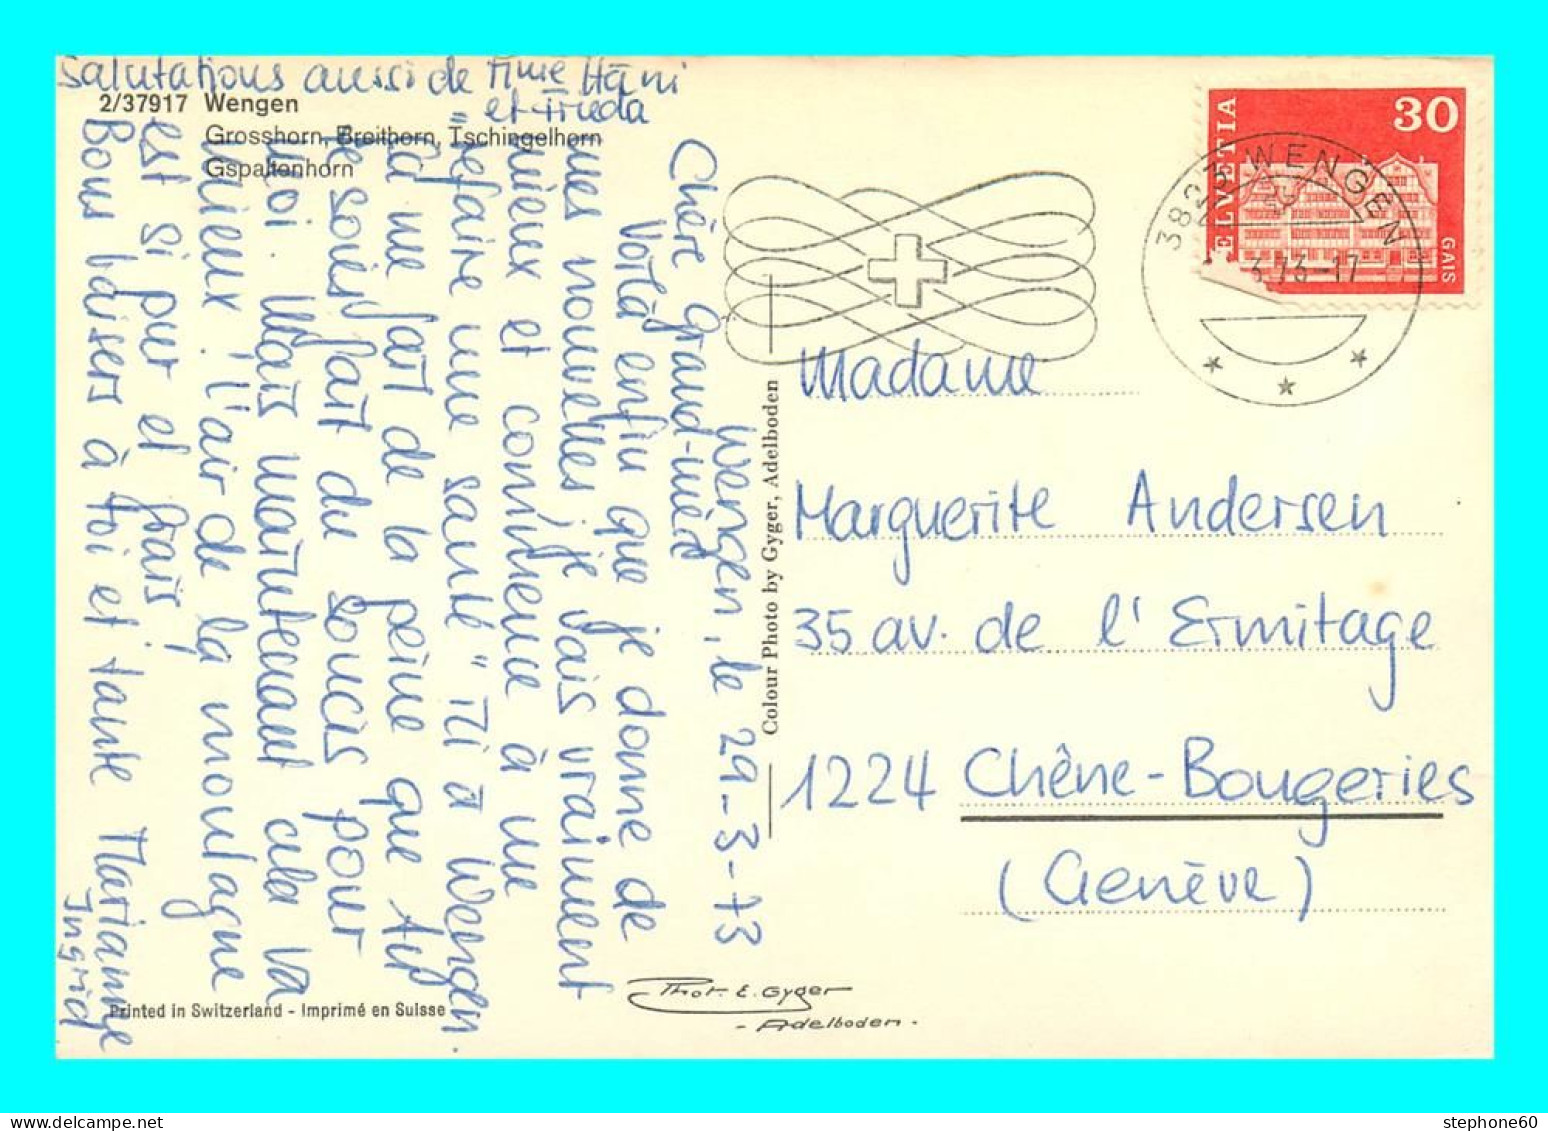 Salutations aussi de Mme Häni
et Frieda
2/37917 Wengen
Grosshorn, Breithorn, Tschingelhorn
Gspaltenhorn
Wengen, le 29-3-73
Chère grand-mère
Voilà enfin que je donne de
mes nouvelles, je vais vraiment
mieux et commence à me
"refaire une santé" ici à Wengen
Ça me fait de la peine que
te sois fait du soucis pour
moi. Mais maintenant cela va
mieux. l'air de la montagne
est si pur et frais,
Bons baisers à toi et tante Marianne
Ingrid
Printed in Switzerland - Imprimé en Suisse
Colour Photo by Gyger, Adelboden
Phot. E. Gyger
- Adelboden -
HELVETIA
30
GAIS
3823 WENGEN
3.73-17
Madame
Marguerite Andersen
35 av. de l'Ermitage
1224 Chêne-Bougeries
(Genève)
stephone60